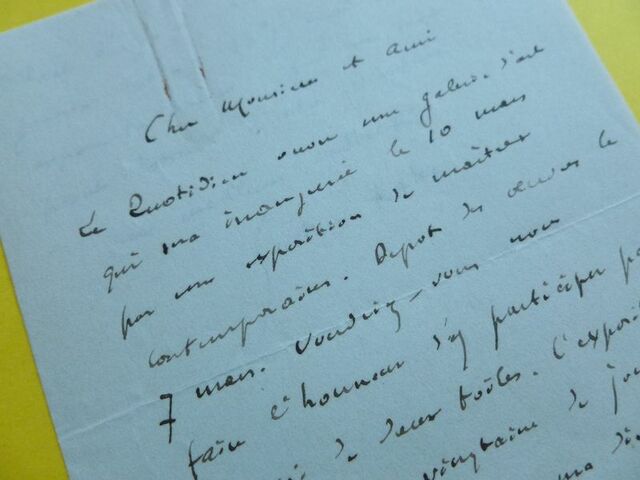 Cher Monsieur et ami
Le Quotidien ouvre une galerie d'art
qui sera inaugurée le 10 mars
par une exposition de maîtres
contemporains. Depot des œuvres le
7 mars. Voudriez-vous nous
faire l'honneur d'y participer pa
de deux toiles. L'exposi
vingtaine de jou